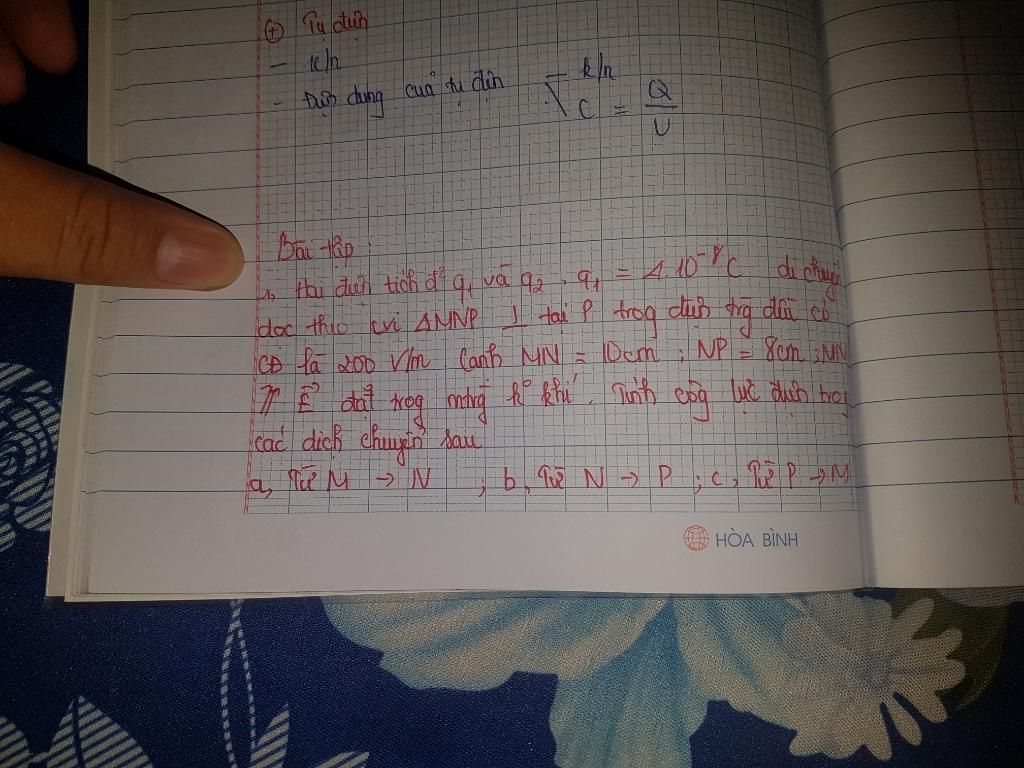 ⊕ Tụ điện
- k/n
- Điện dung của tụ điện - k/n
C = Q/U
Bài tập:
Hai điện tích đ² q₁ và q₂, q₁ = 4.10⁻⁸C di chuyển
dọc theo cvi ΔMNP ⊥ tại P trog điện trg đều có
CĐ là 200 V/m Cạnh MN = 10cm ; NP = 8cm ; MN
⇈ E⃗ đặt trog mtrg k² khí. Tính côg lực điện trog
các dịch chuyển sau
a, Từ M → N ; b, Từ N → P ; c, Từ P → M
HÒA BÌNH